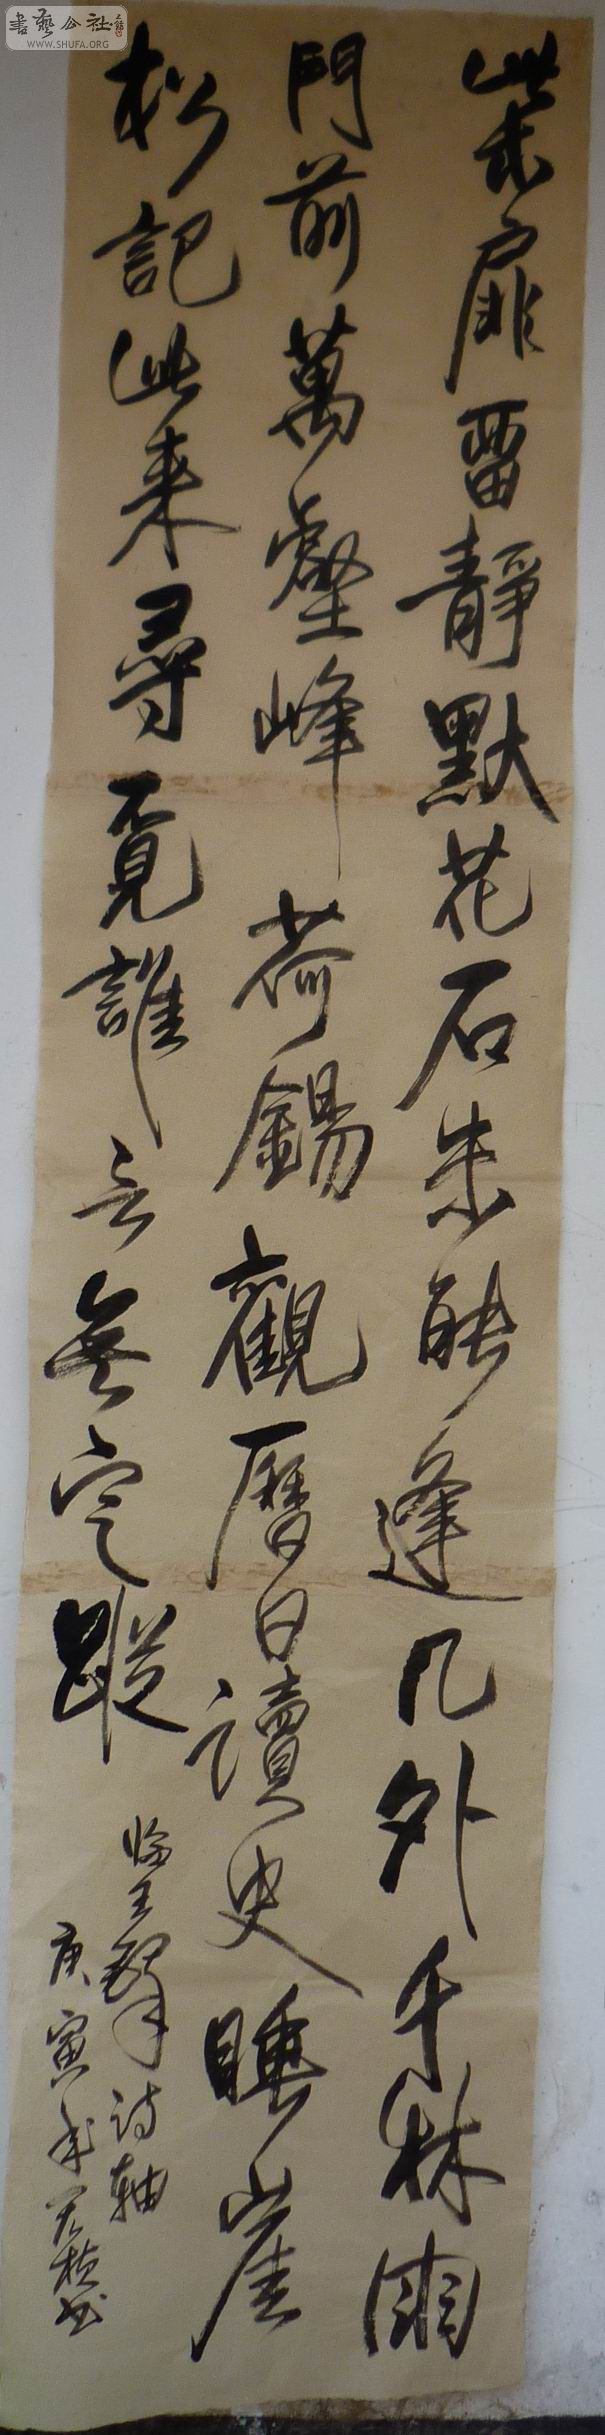 書藝公社
WWW.SHUFA.ORG
柴扉留靜默花石未能逢几外千林雨
門前萬壑峰荷錫觀曆日讀史睡崖
松記此来尋覓誰云無定蹤
臨王鐸诗轴
庚寅年